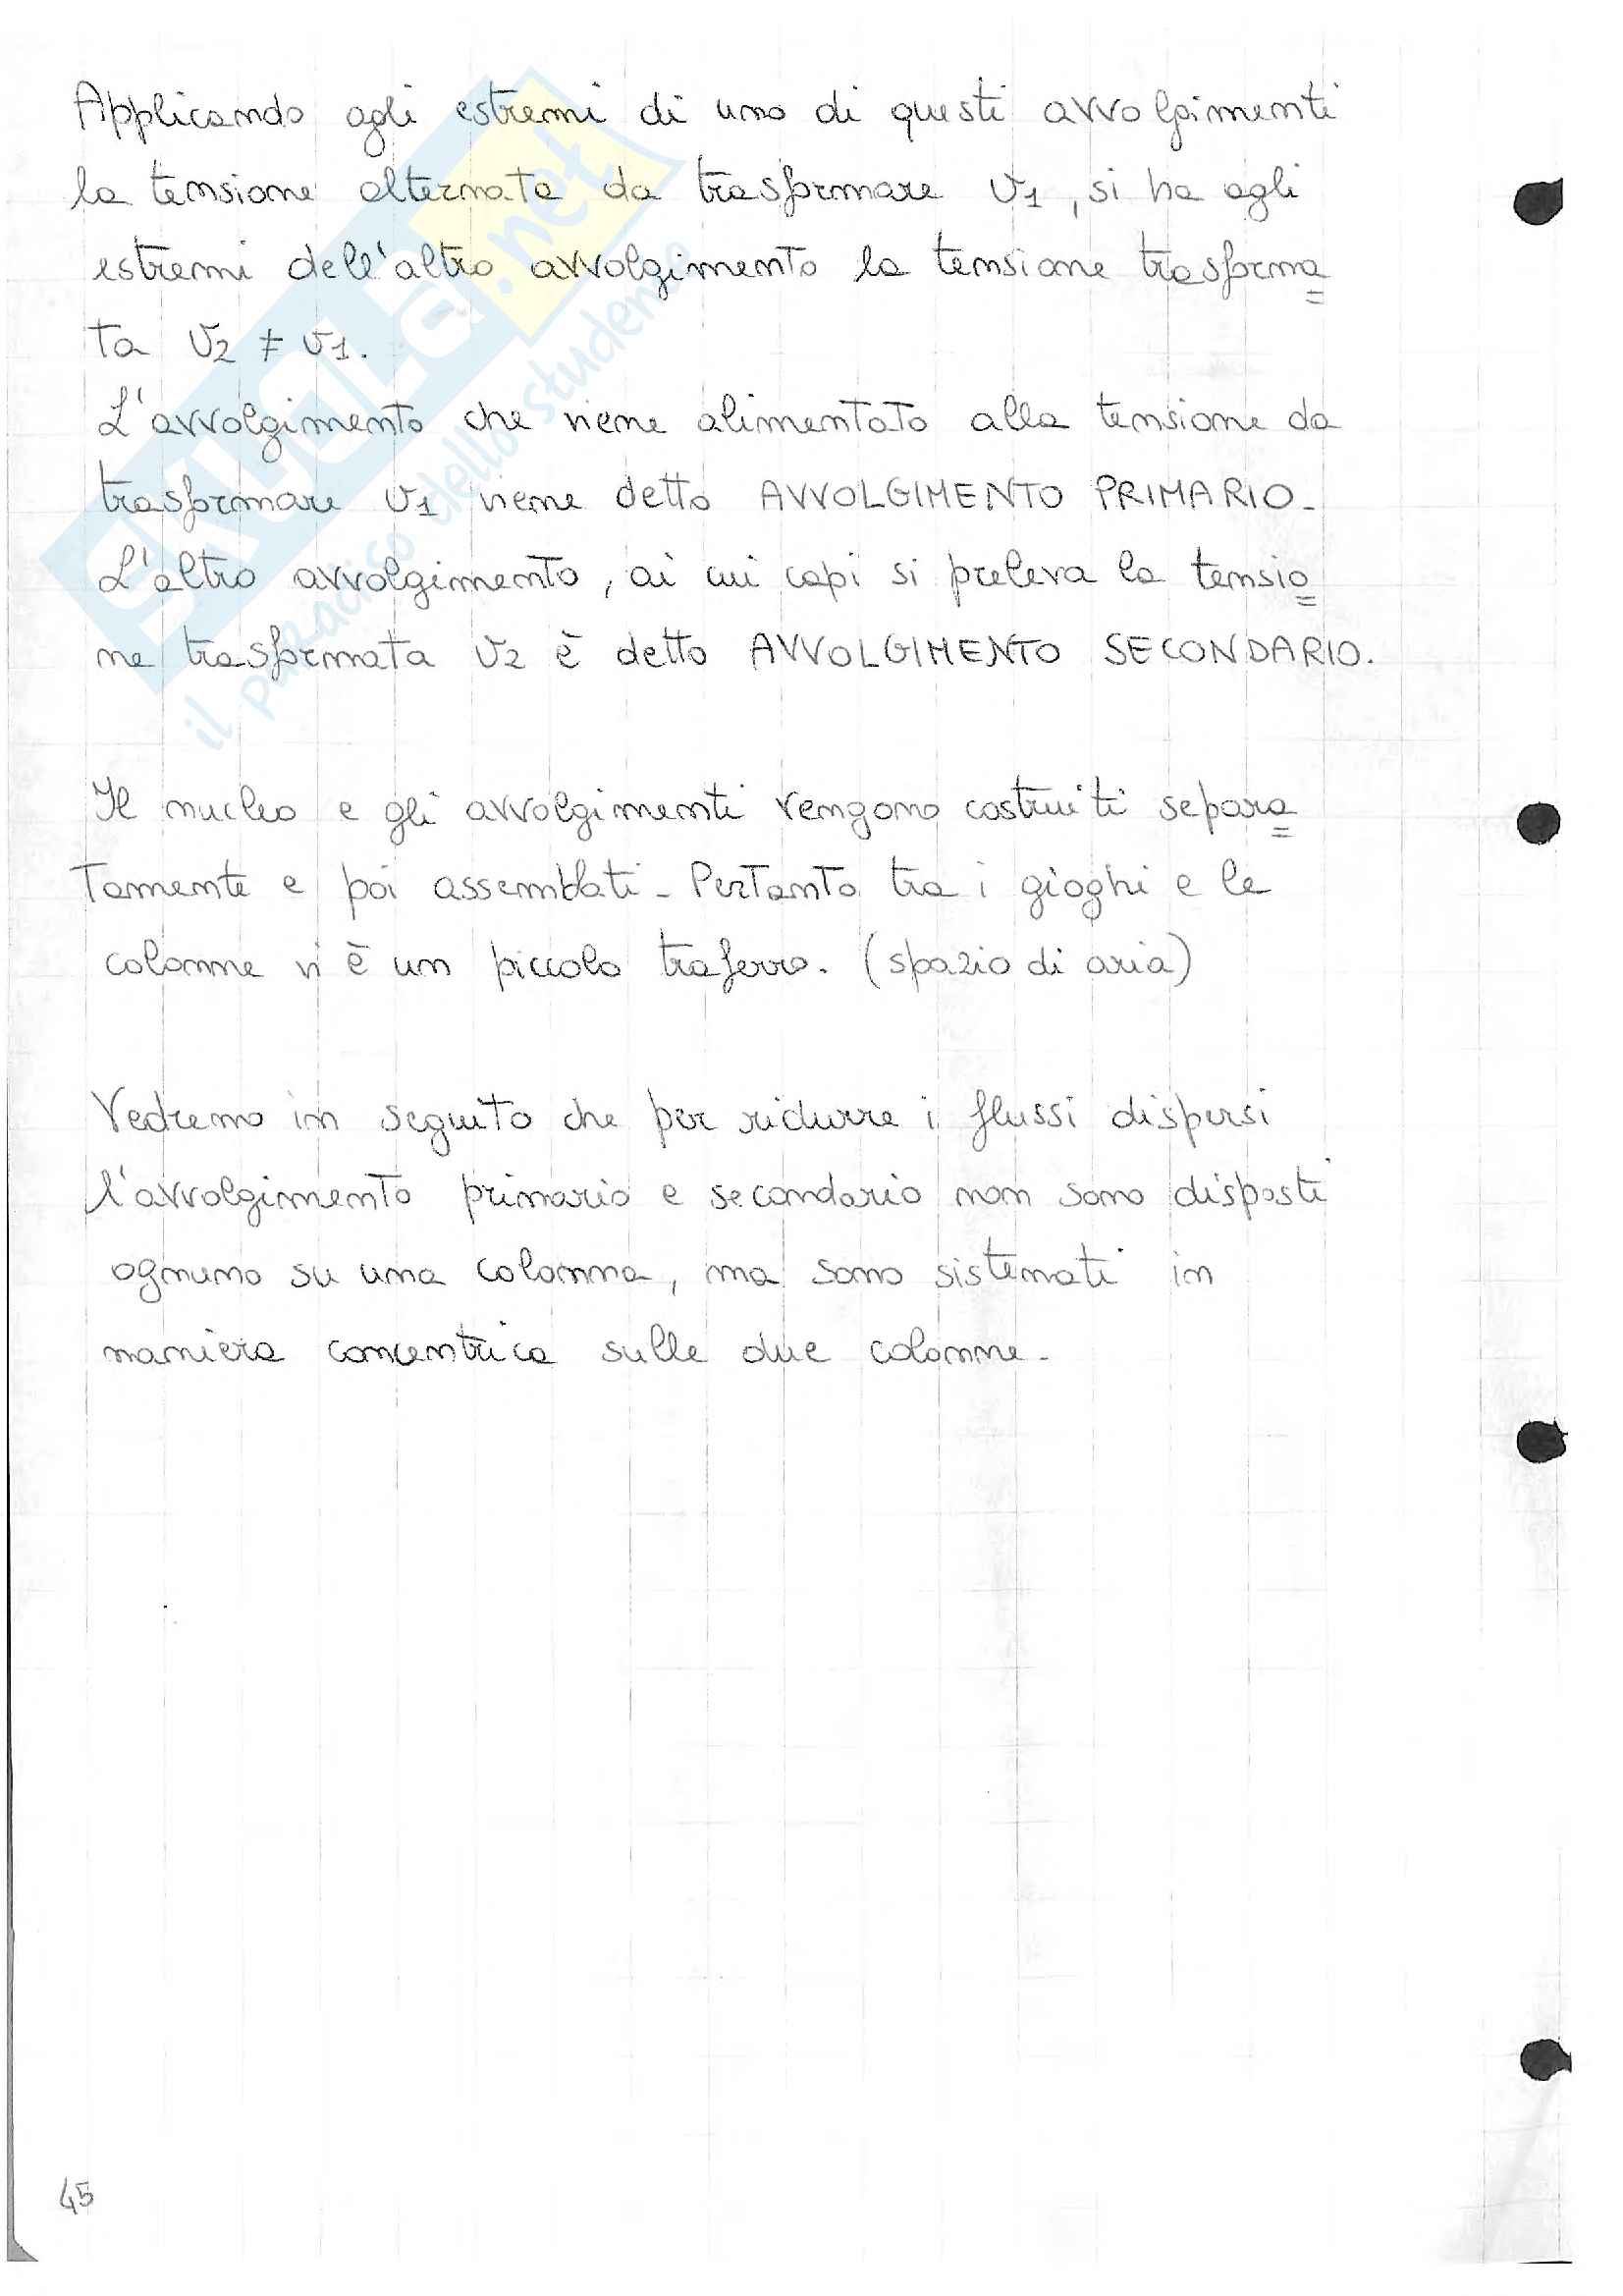 Applicando agli estremi di uno di questi avvolgimenti
la tensione alternata da trasformare v1, si ha agli
estremi dell'altro avvolgimento la tensione trasforma=
ta v2 ≠ v1.
L'avvolgimento che viene alimentato alla tensione da
trasformare v1 viene detto AVVOLGIMENTO PRIMARIO-
L'altro avvolgimento, ai cui capi si preleva la tensio=
ne trasformata v2 è detto AVVOLGIMENTO SECONDARIO.
Il nucleo e gli avvolgimenti vengono costruiti separa=
tamente e poi assemblati- Pertanto tra i gioghi e le
colonne vi è un piccolo traferro. (spazio di aria)
Vedremo in seguito che per ridurre i flussi dispersi
l'avvolgimento primario e secondario non sono disposti
ognuno su una colonna, ma sono sistemati in
maniera concentrica sulle due colonne-
45
SKUOLA.net
il paradiso dello studente